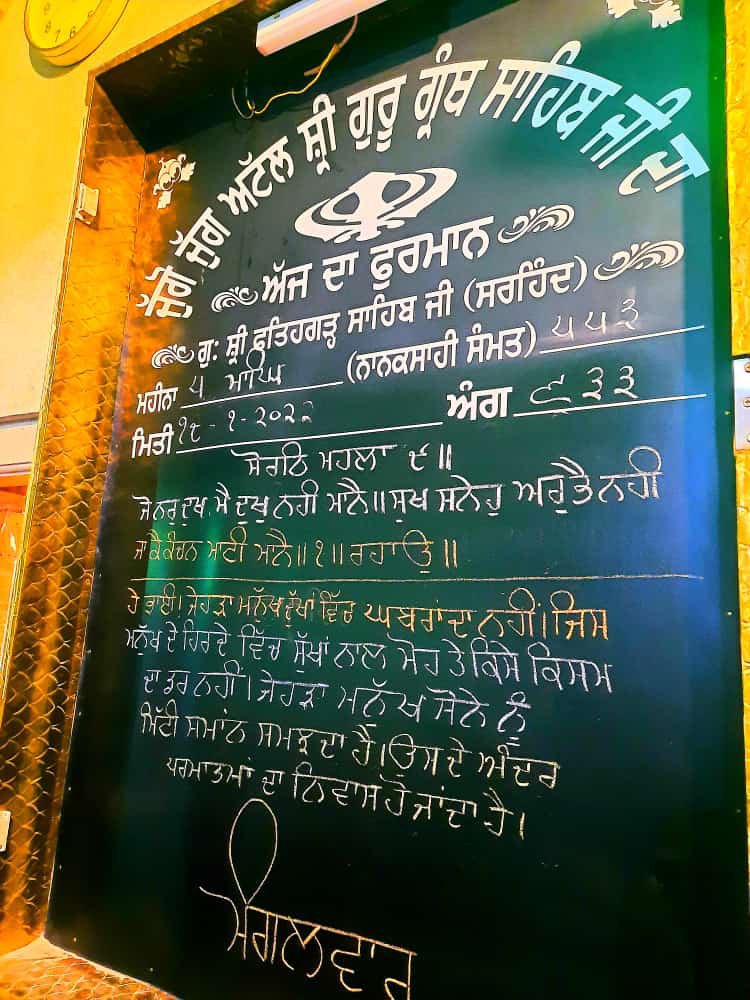 ਜੁੱਗੋ ਜੁੱਗ ਅਟੱਲ ਸ਼੍ਰੀ ਗੁਰੂ ਗ੍ਰੰਥ ਸਾਹਿਬ ਜੀ ਦਾ
ਅੱਜ ਦਾ ਫੁਰਮਾਨ
ਗੁ: ਸ਼੍ਰੀ ਫਤਿਹਗੜ੍ਹ ਸਾਹਿਬ ਜੀ (ਸਰਹਿੰਦ)
ਮਹੀਨਾ ੫ ਮਾਘਿ (ਨਾਨਕਸਾਹੀ ਸੰਮਤ) ੫੫੩
ਮਿਤੀ ੧੮-੧-੨੦੨੨ ਅੰਗ ੬੩੩
ਸੋਰਠਿ ਮਹਲਾ ੯॥
ਜੋ ਨਰੁ ਦੁਖ ਮੈ ਦੁਖੁ ਨਹੀ ਮਾਨੈ॥ ਸੁਖ ਸਨੇਹੁ ਅਰੁ ਭੈ ਨਹੀ
ਜਾ ਕੈ ਕੰਚਨ ਮਾਟੀ ਮਾਨੈ॥੧॥ ਰਹਾਉ॥
ਹੇ ਭਾਈ। ਜੇਹੜਾ ਮਨੁੱਖ ਦੁੱਖਾਂ ਵਿੱਚ ਘਬਰਾਂਦਾ ਨਹੀਂ। ਜਿਸ
ਮਨੁੱਖ ਦੇ ਹਿਰਦੇ ਵਿੱਚ ਸੁੱਖਾਂ ਨਾਲ ਮੋਹ ਤੇ ਕਿਸੇ ਕਿਸਮ
ਦਾ ਡਰ ਨਹੀਂ। ਜੇਹੜਾ ਮਨੁੱਖ ਸੋਨੇ ਨੂੰ
ਮਿੱਟੀ ਸਮਾਂਨ ਸਮਝਦਾ ਹੈ। ਉਸਦੇ ਅੰਦਰ
ਪਰਮਾਤਮਾਂ ਦਾ ਨਿਵਾਸ ਹੋ ਜਾਂਦਾ ਹੈ।
ਮੰਗਲਵਾਰ